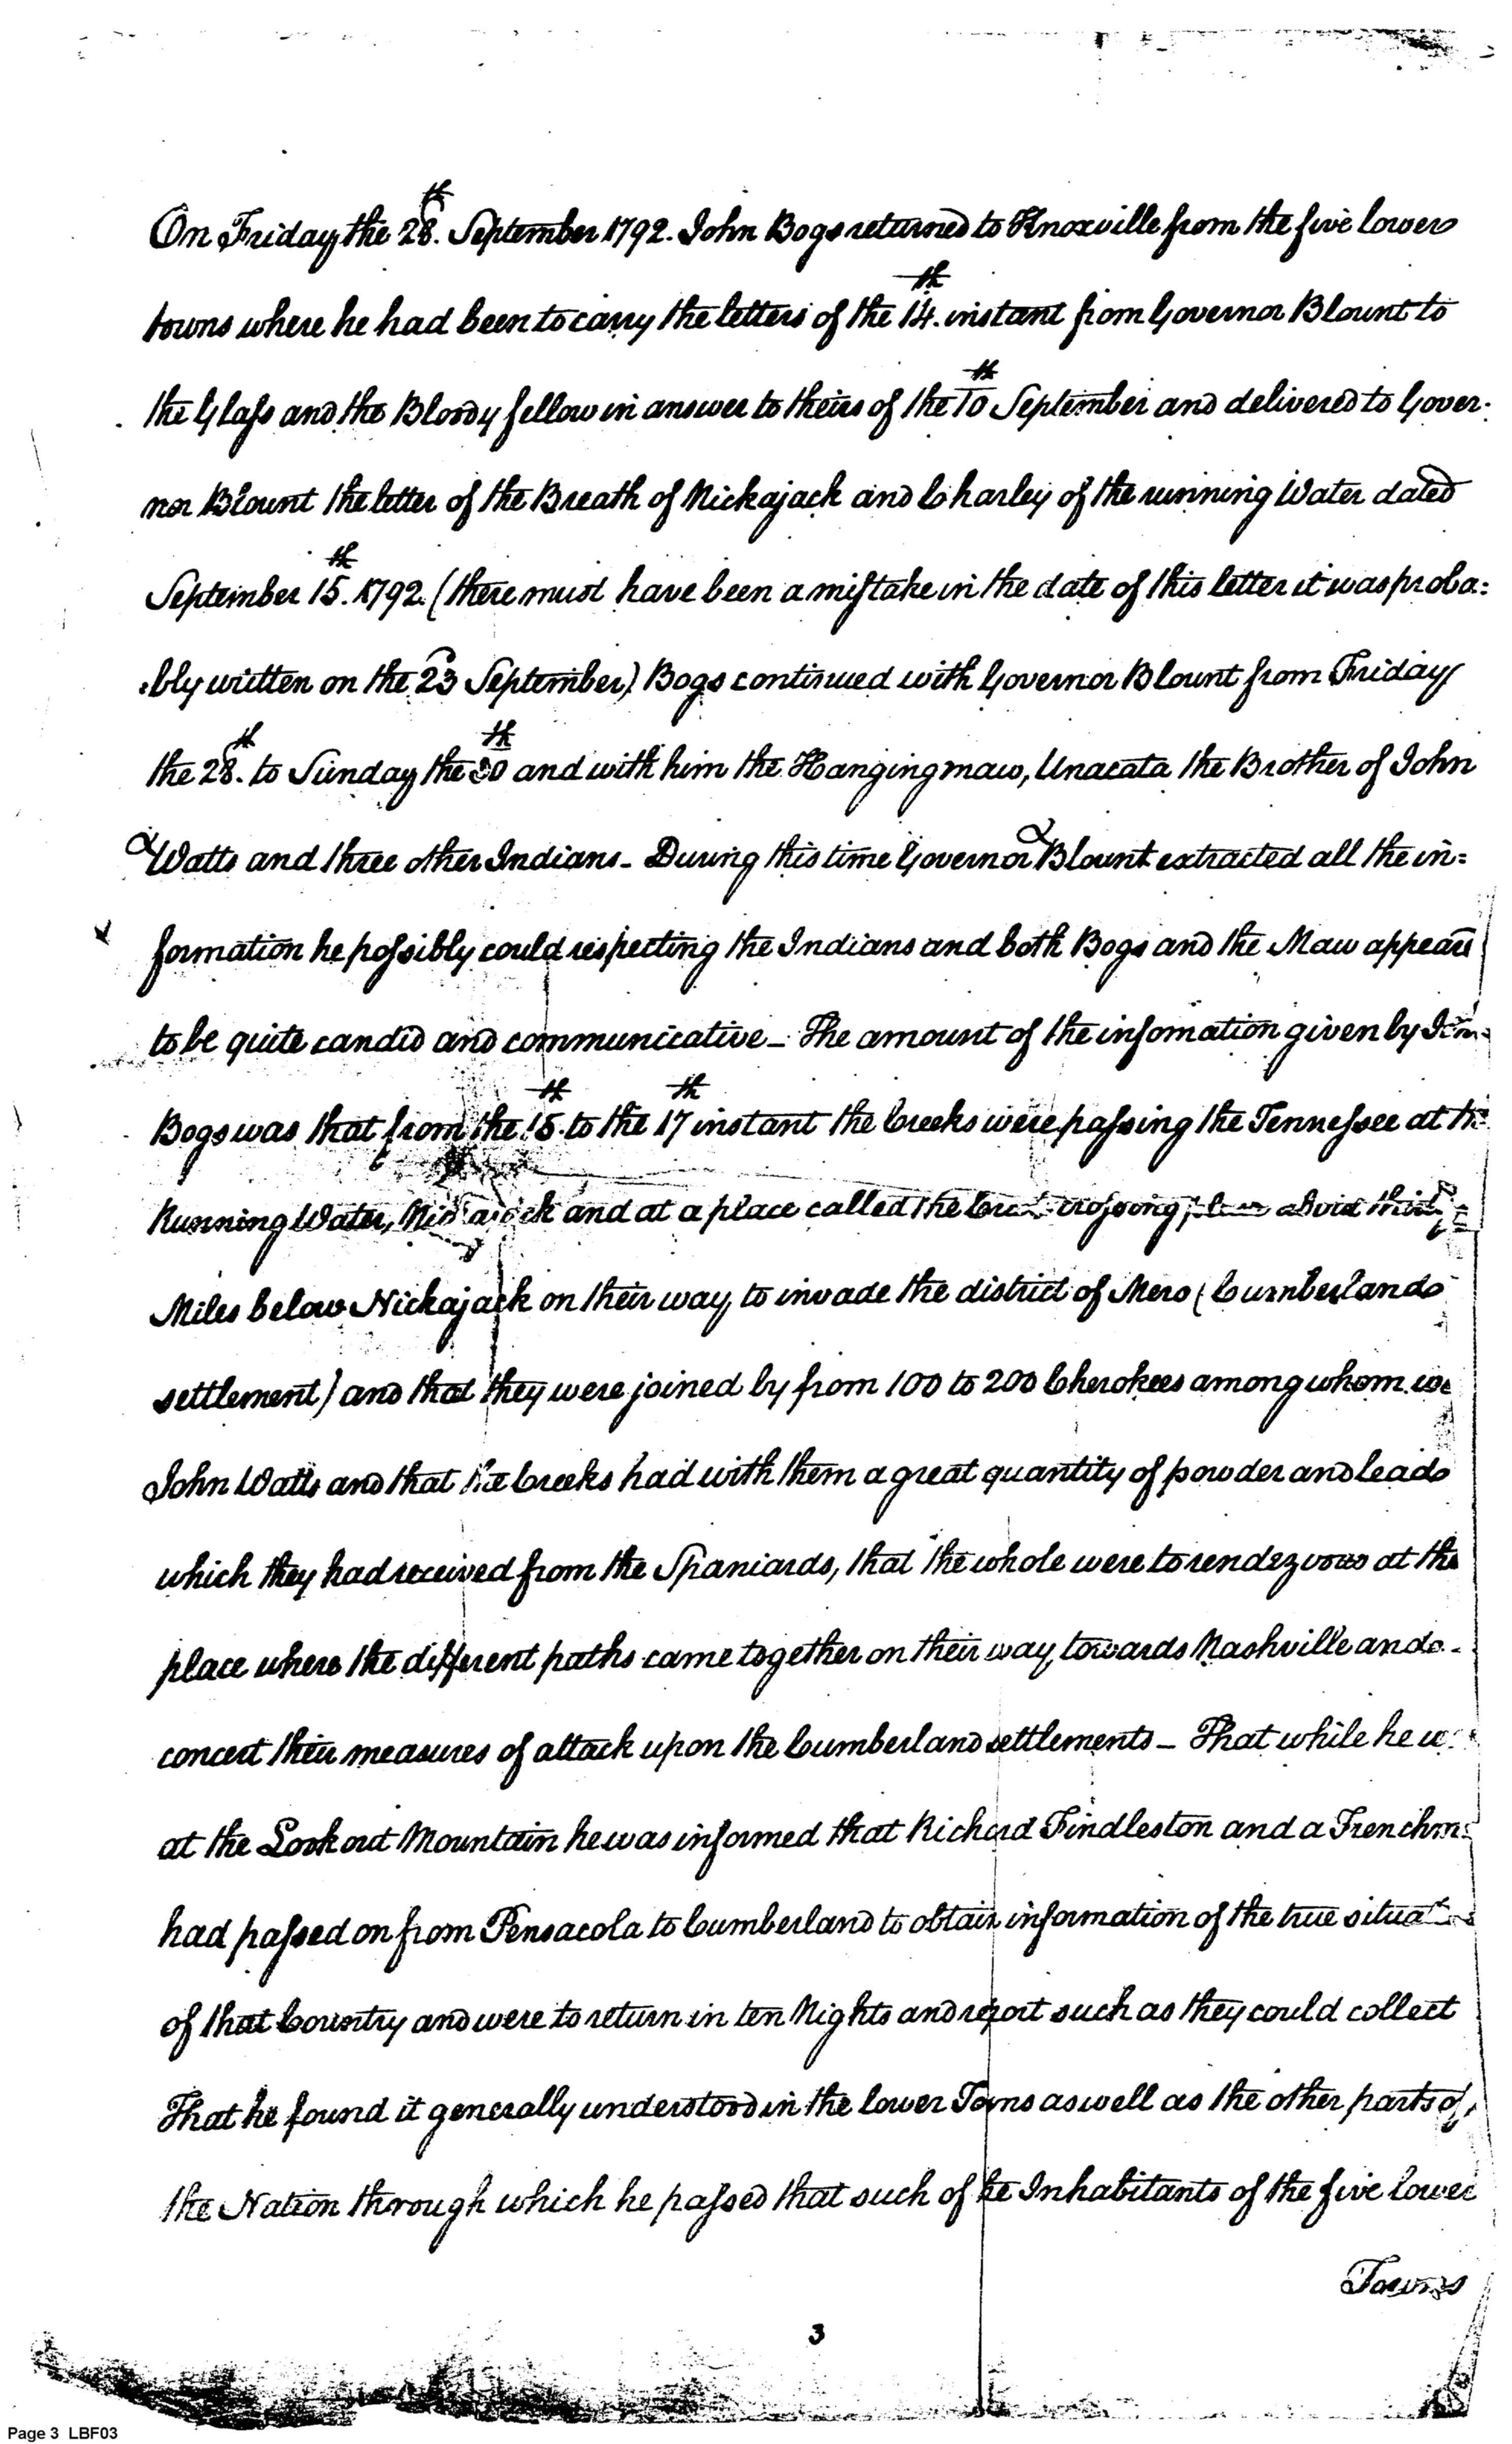 On Friday the 28th. September 1792. John Bogs returned to Knoxville from the five lower
towns where he had been to carry the letters of the 14th. instant from Governor Blount to
the Glass and the Bloody fellow in answer to theirs of the 10th September and delivered to Gover-
nor Blount the letter of the Breath of Nickajack and Charley of the running Water dated
September 15th. 1792. (there must have been a mistake in the date of this letter it was proba=
=bly written on the 23 September) Bogs continued with Governor Blount from Friday
the 28th. to Sunday the 30th and with him the Hangingmaw, Unacata the Brother of John
Watts and three other Indians_ During this time Governor Blount extracted all the in=
formation he possibly could respecting the Indians and both Bogs and the Maw appeard
to be quite candid and communicative_ The amount of the infomation given by
Bogs was that from the 15th. to the 17th instant the Creeks were passing the Tennessee at the
Running Water, Nickajack and at a place called the Creek crossing place about thirty
Miles below Nickajack on their way to invade the district of Mero (Cumberland
settlement) and that they were joined by from 100 to 200 Cherokees among whom
John Watts and that the Creeks had with them a great quantity of powder and lead
which they had received from the Spaniards, that the whole were to rendezvous at the
place where the different paths came together on their way towards Nashville and
concert their measures of attack upon the Cumberland settlements_ That while he
at the Lookout Mountain he was informed that Richard Findleston and a Frenchm
had passed on from Pensacola to Cumberland to obtain information of the true situation
of that Country and were to return in ten Nights and report such as they could collect
That he found it generally understood in the lower Towns as well as the other parts of
the Nation through which he passed that such of the Inhabitants of the five lower
Towns
3
Page 3 LBF03